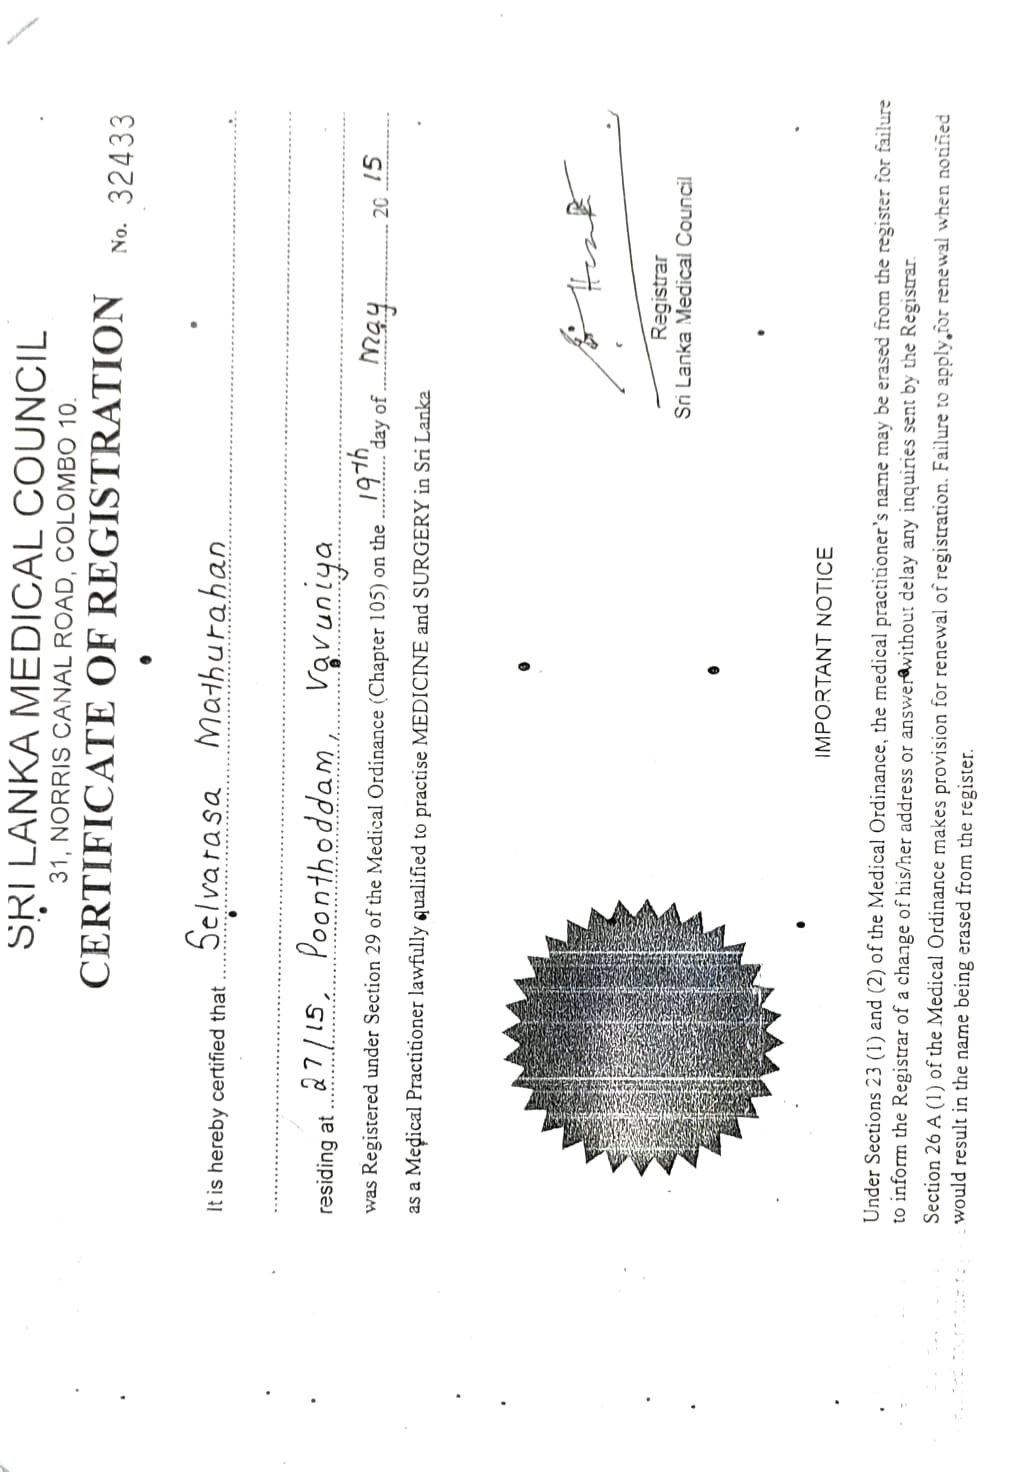 SRI LANKA MEDICAL COUNCIL
31, NORRIS CANAL ROAD, COLOMBO 10.
CERTIFICATE OF REGISTRATION
No. 32433
It is hereby certified that Selvarasa Mathurahan
residing at 27/15, Poonthoddam, Vavuniya
was Registered under Section 29 of the Medical Ordinance (Chapter 105) on the 19th day of May 20 15
as a Medical Practitioner lawfully qualified to practise MEDICINE and SURGERY in Sri Lanka
Registrar
Sri Lanka Medical Council
IMPORTANT NOTICE
Under Sections 23 (1) and (2) of the Medical Ordinance, the medical practitioner's name may be erased from the register for failure
to inform the Registrar of a change of his/her address or answer without delay any inquiries sent by the Registrar.
Section 26 A (1) of the Medical Ordinance makes provision for renewal of registration. Failure to apply for renewal when notified
would result in the name being erased from the register.